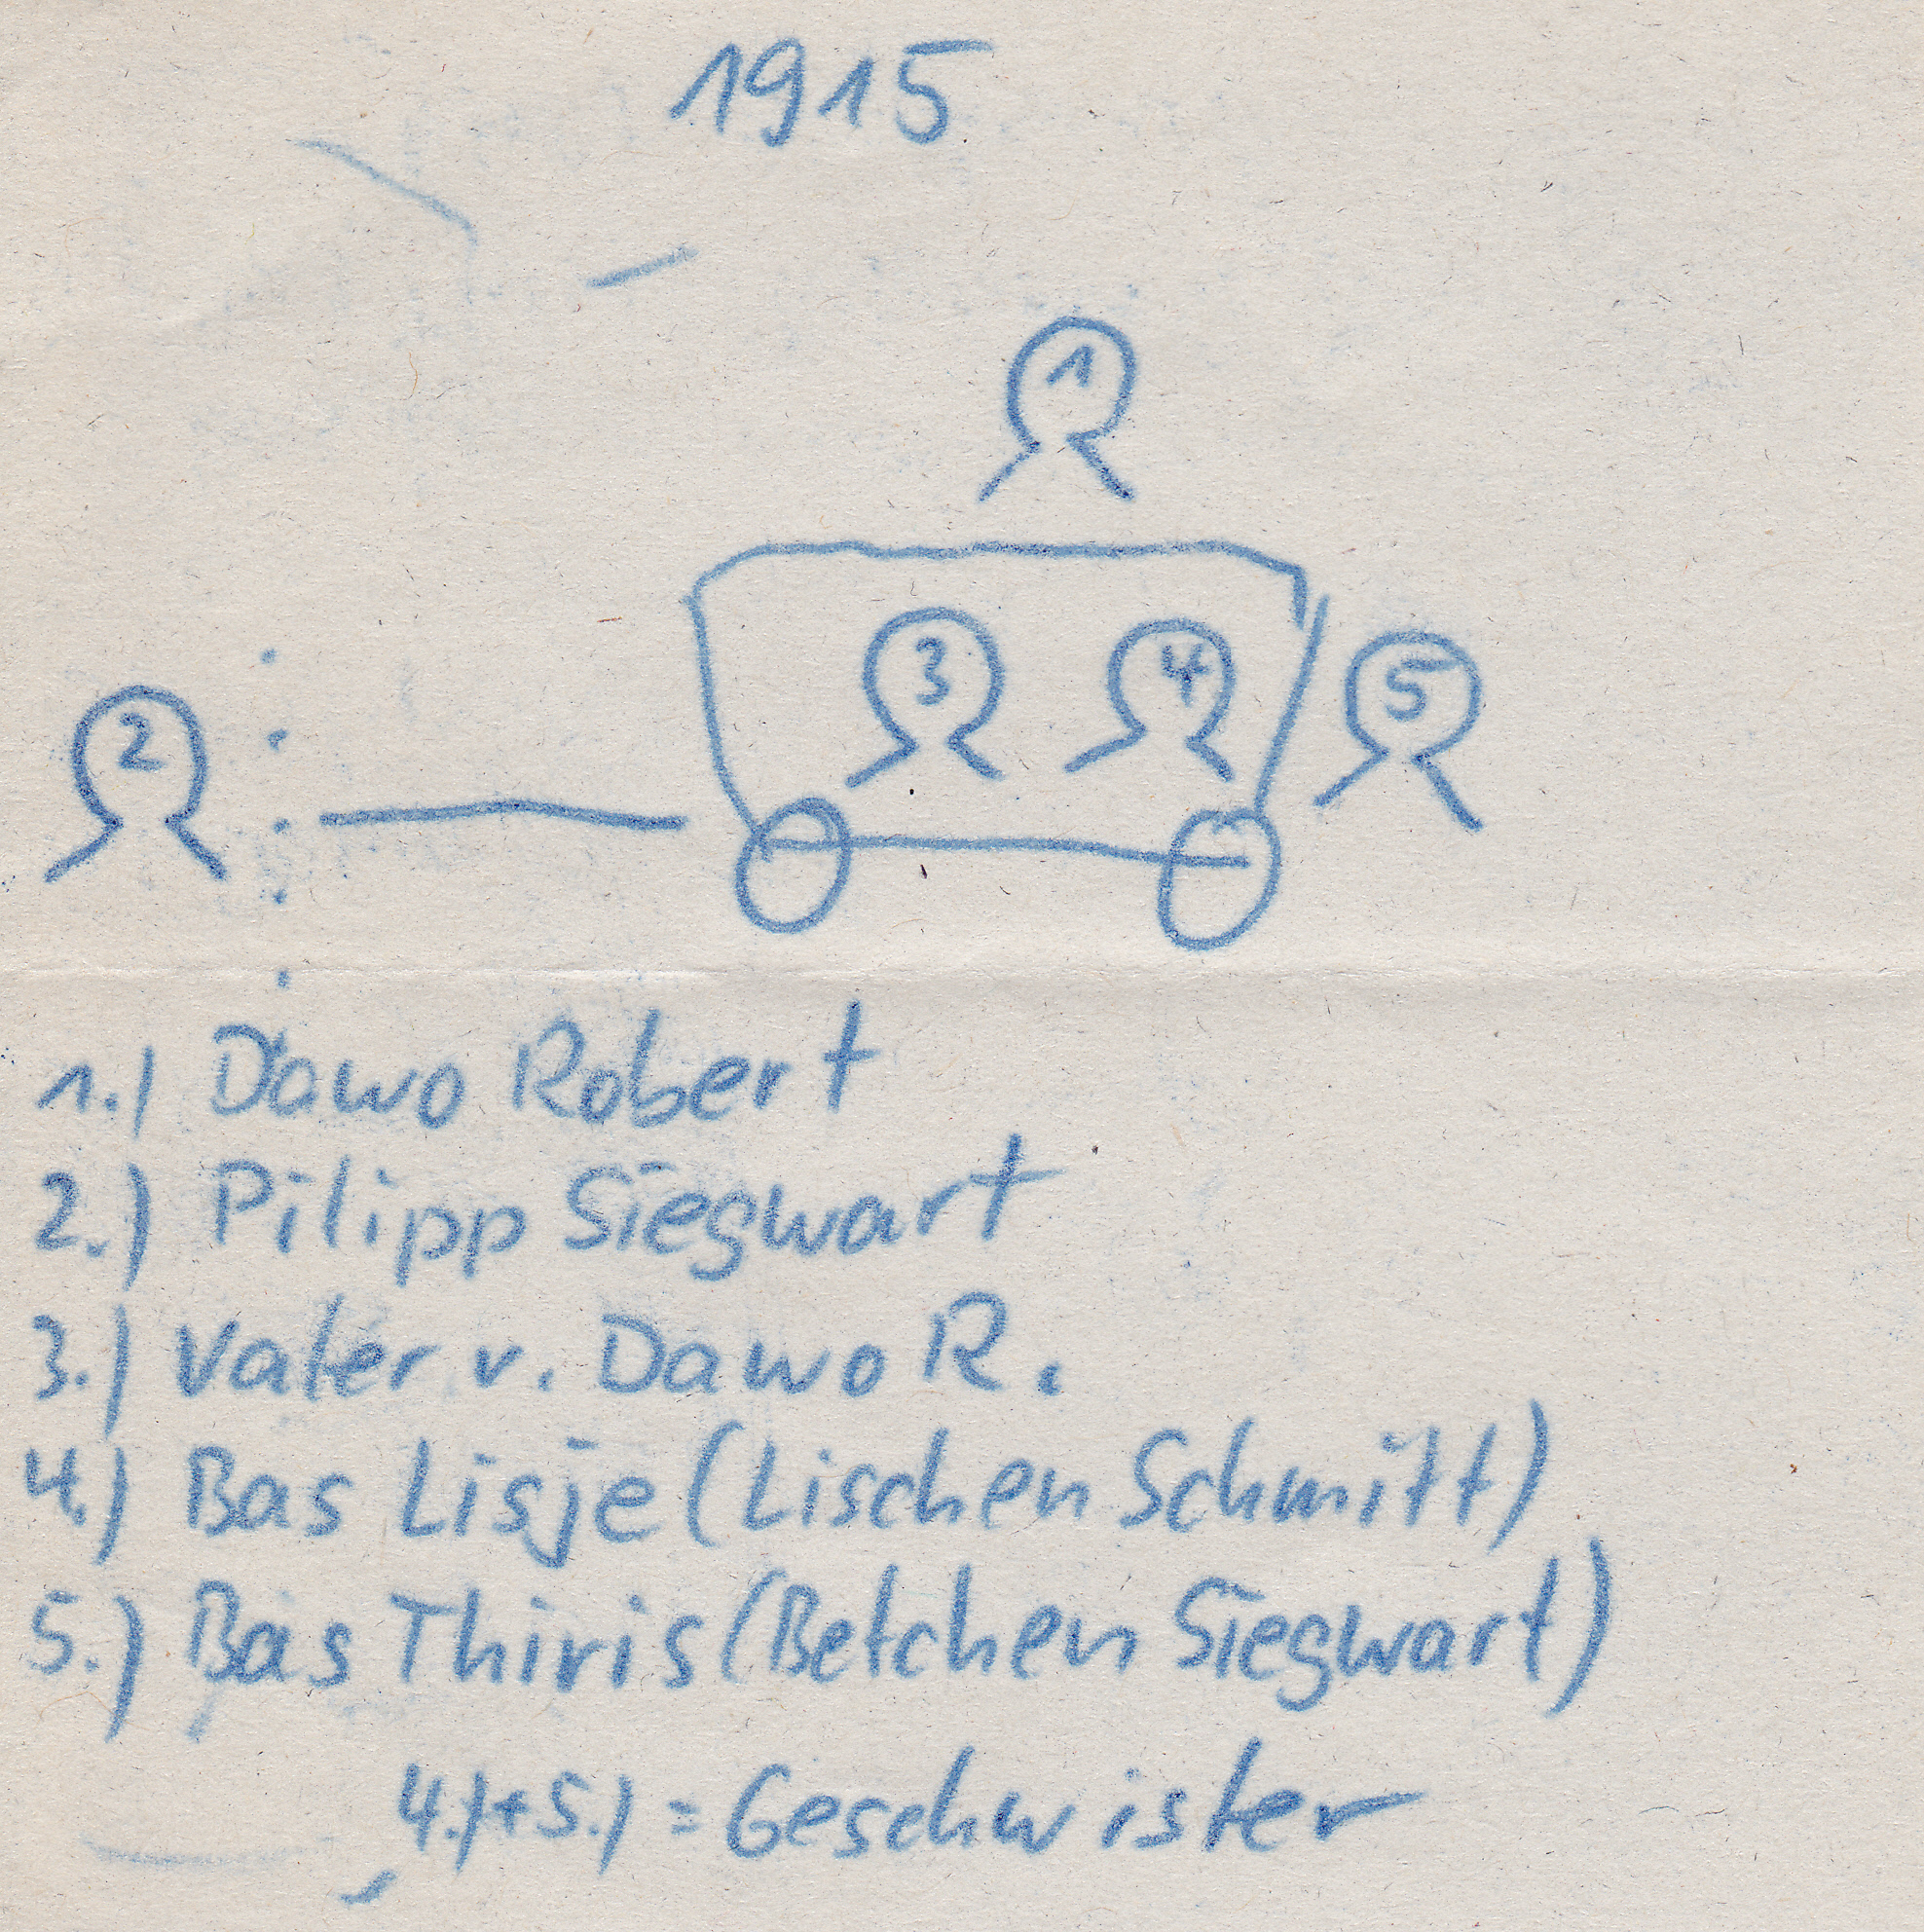 1915
1
2
3
4
5
1.) Dawo Robert
2.) Pilipp Siegwart
3.) Vater v. Dawo R.
4.) Bas Lisje (Lischen Schmitt)
5.) Bas Thiris (Betchen Siegwart)
4.)+5.) = Geschwister